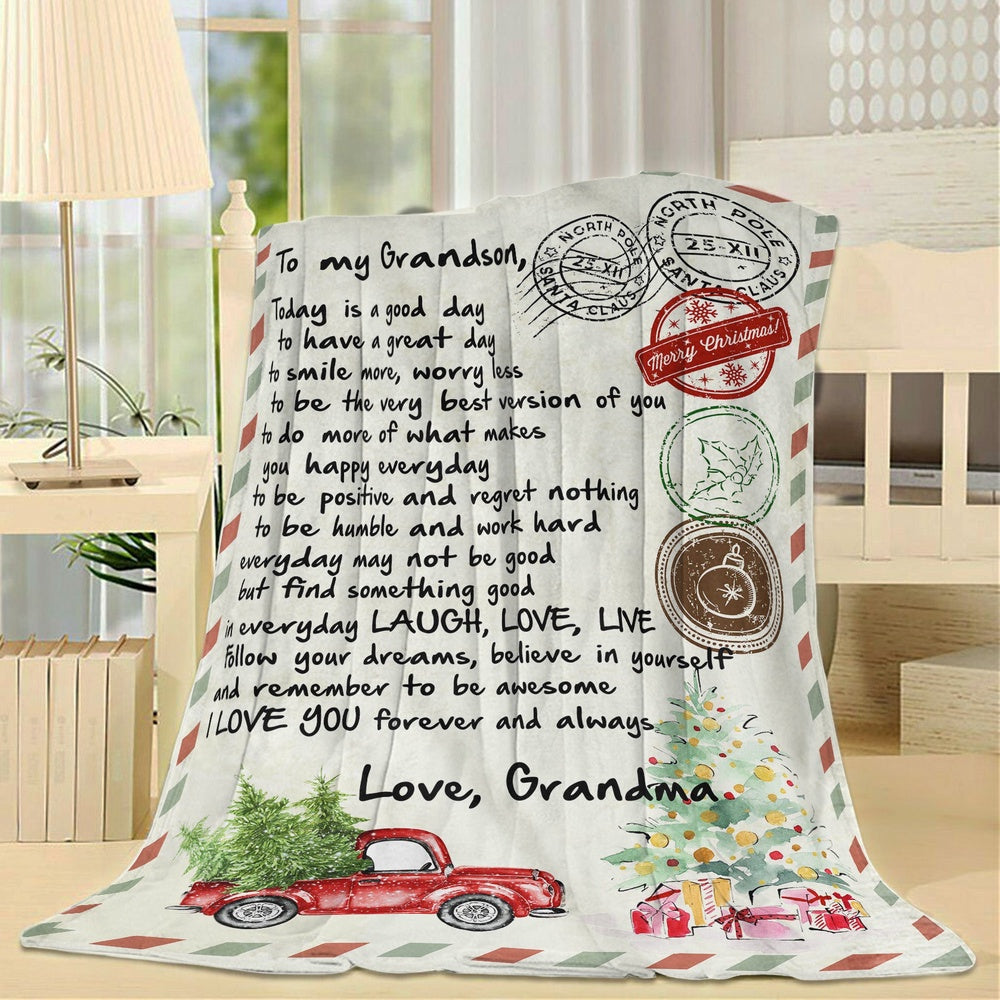 To my Grandson,
Today is a good day
to have a great day
to smile more, worry less
to be the very best version of you
to do more of what makes
you happy everyday
to be positive and regret nothing
to be humble and work hard
everyday may not be good
but find something good
in everyday LAUGH, LOVE, LIVE
Follow your dreams, believe in yourself
and remember to be awesome
I LOVE YOU forever and always
Love, Grandma
NORTH POLE
25-XII
SANTA CLAUS
NORTH POLE
25-XII
SANTA CLAUS
Merry Christmas!